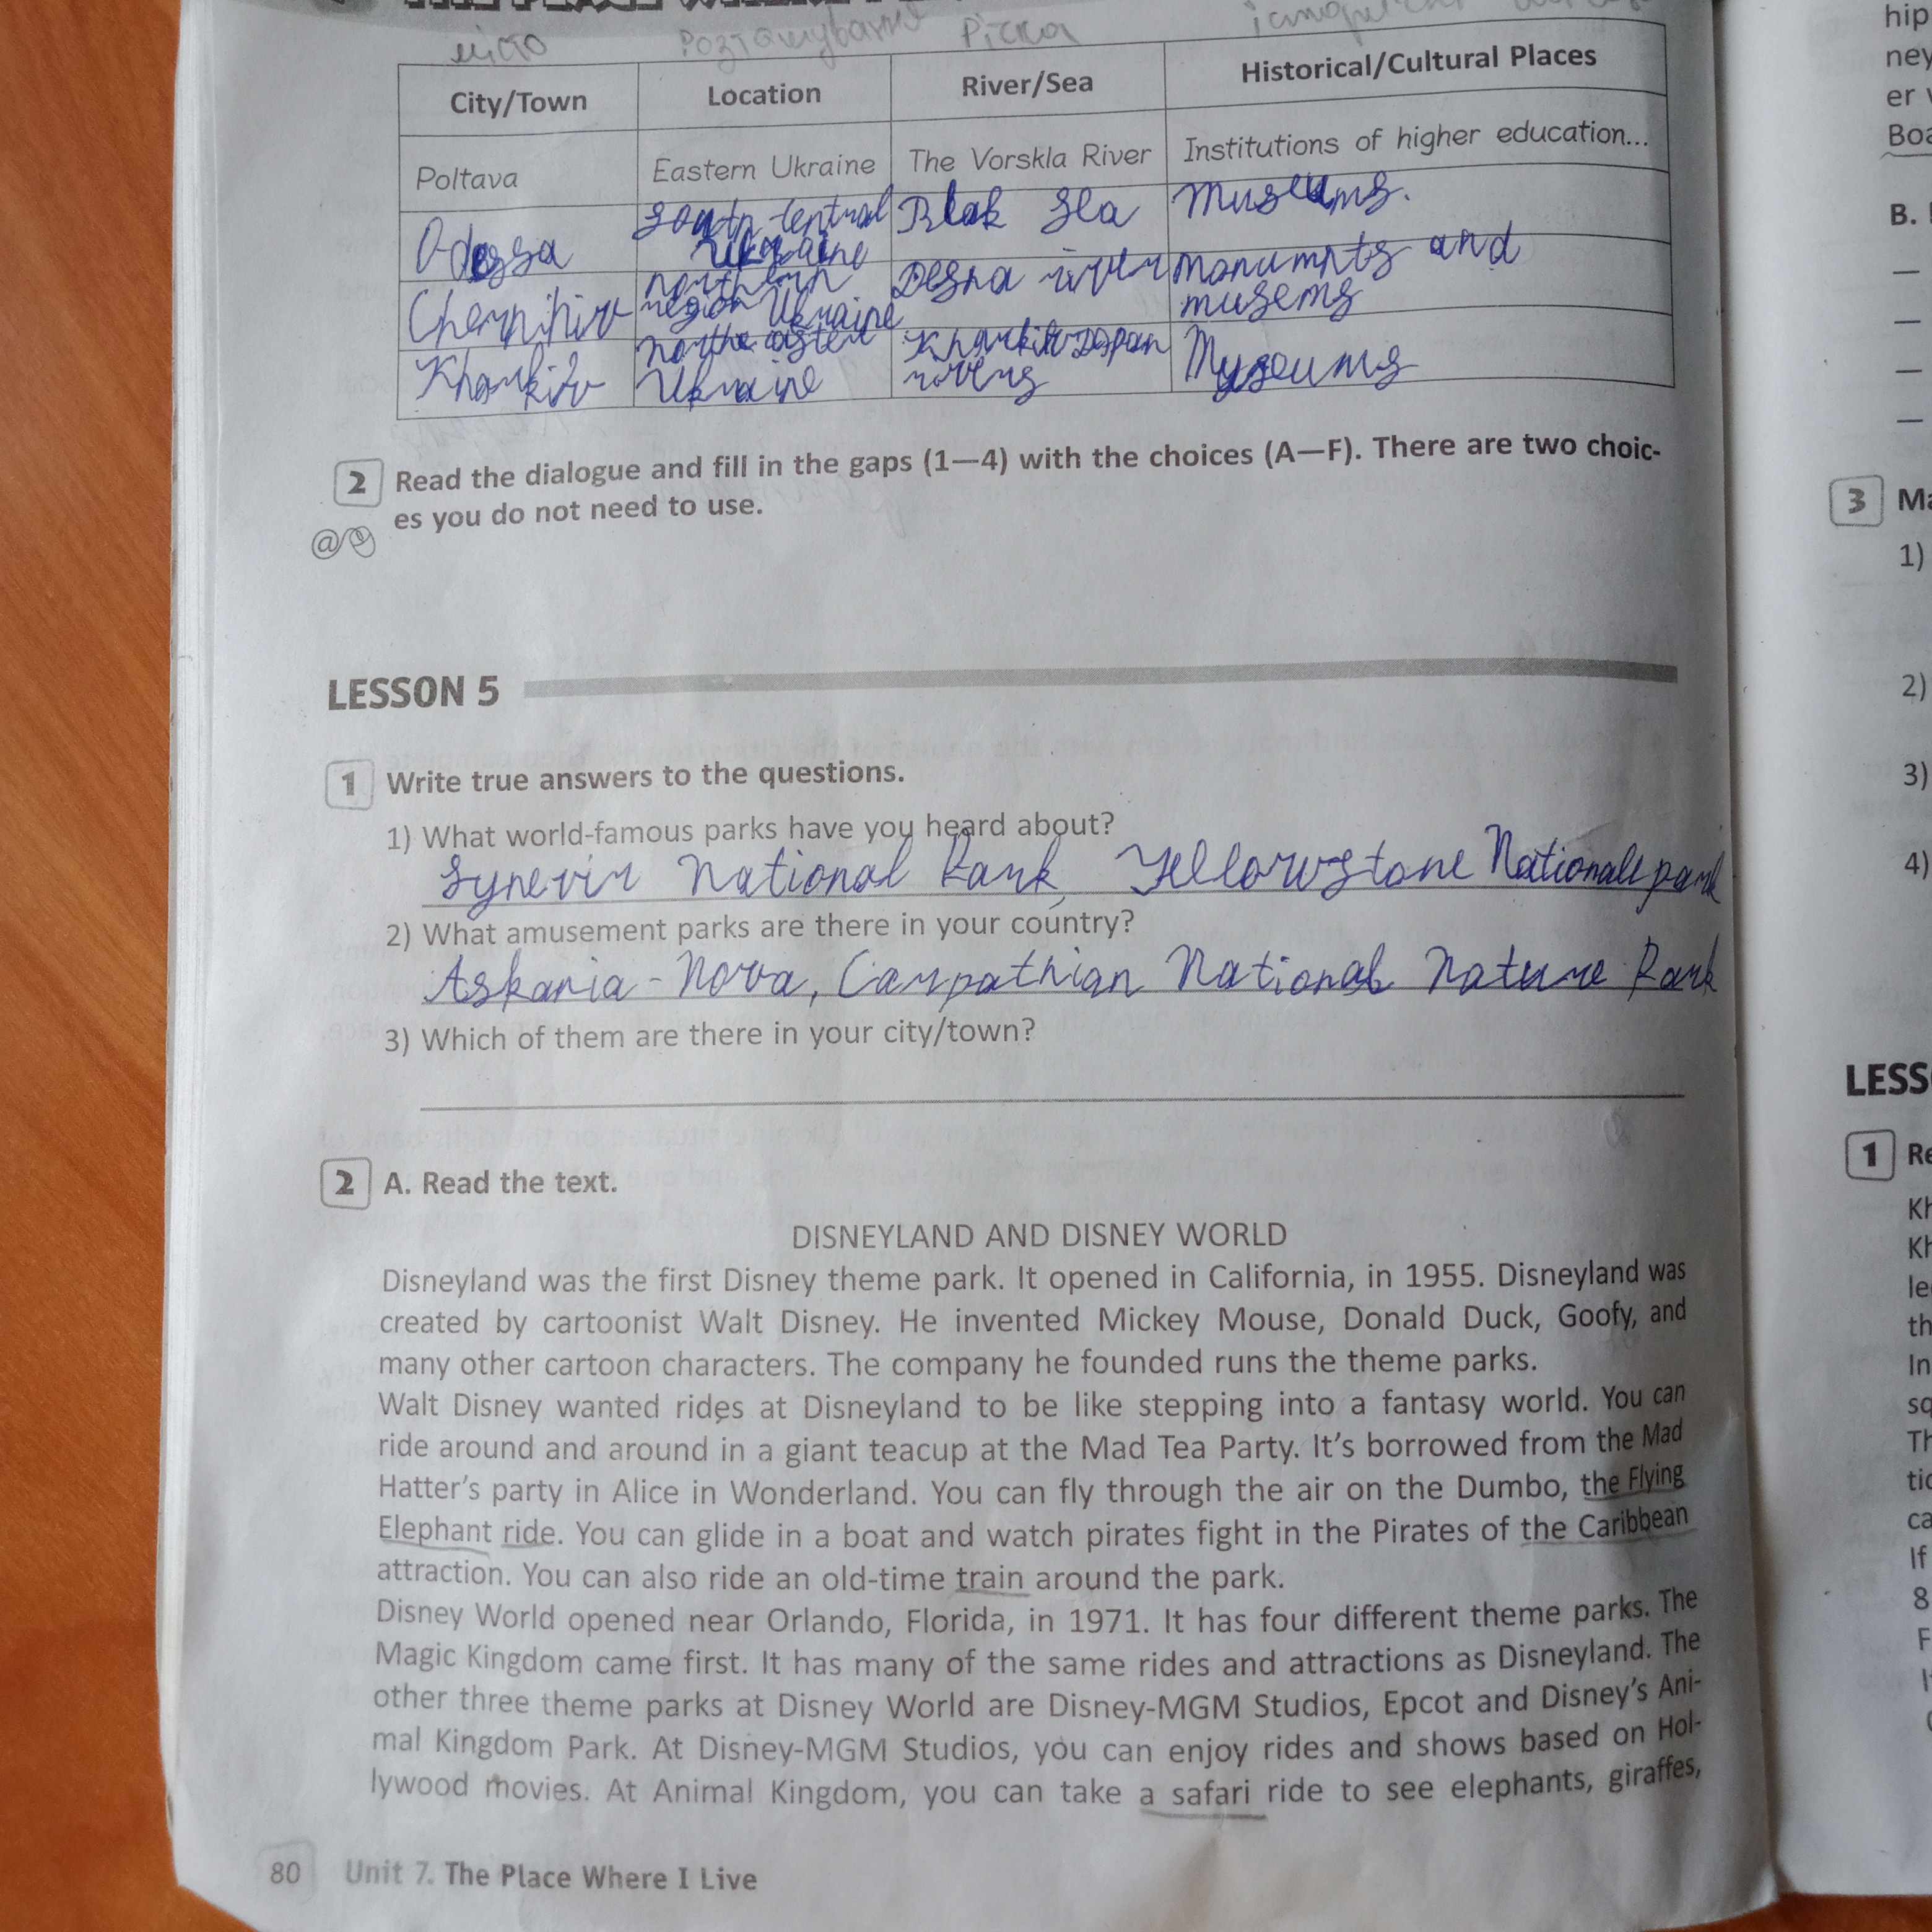 місто Розташування Річка
City/Town Location River/Sea Historical/Cultural Places
Poltava Eastern Ukraine The Vorskla River Institutions of higher education...
Odessa South-central Ukraine Blak Sea Museums.
Chernihiv northern region Ukraine Desna river monumnts and musems
Kharkiv Ukraine Kharkiv Myseums
2 Read the dialogue and fill in the gaps (1—4) with the choices (A—F). There are two choic-
es you do not need to use.
LESSON 5
1 Write true answers to the questions.
1) What world-famous parks have you heard about?
Synevir National Park, Yellowstone National park
2) What amusement parks are there in your country?
Askania-Nova, Carpathian National Nature Park
3) Which of them are there in your city/town?
2 A. Read the text.
DISNEYLAND AND DISNEY WORLD
Disneyland was the first Disney theme park. It opened in California, in 1955. Disneyland was
created by cartoonist Walt Disney. He invented Mickey Mouse, Donald Duck, Goofy, and
many other cartoon characters. The company he founded runs the theme parks.
Walt Disney wanted rides at Disneyland to be like stepping into a fantasy world. You can
ride around and around in a giant teacup at the Mad Tea Party. It's borrowed from the Mad
Hatter's party in Alice in Wonderland. You can fly through the air on the Dumbo, the Flying
Elephant ride. You can glide in a boat and watch pirates fight in the Pirates of the Caribbean
attraction. You can also ride an old-time train around the park.
Disney World opened near Orlando, Florida, in 1971. It has four different theme parks. The
Magic Kingdom came first. It has many of the same rides and attractions as Disneyland. The
other three theme parks at Disney World are Disney-MGM Studios, Epcot and Disney's Ani-
mal Kingdom Park. At Disney-MGM Studios, you can enjoy rides and shows based on Hol-
lywood movies. At Animal Kingdom, you can take a safari ride to see elephants, giraffes,
80 Unit 7. The Place Where I Live
hip
ney
er
Boa
B.
3 Ma
1)
2)
3)
4)
LESS
1 Re
Kh
Kh
le
th
In
sq
Th
tic
ca
If
8
F